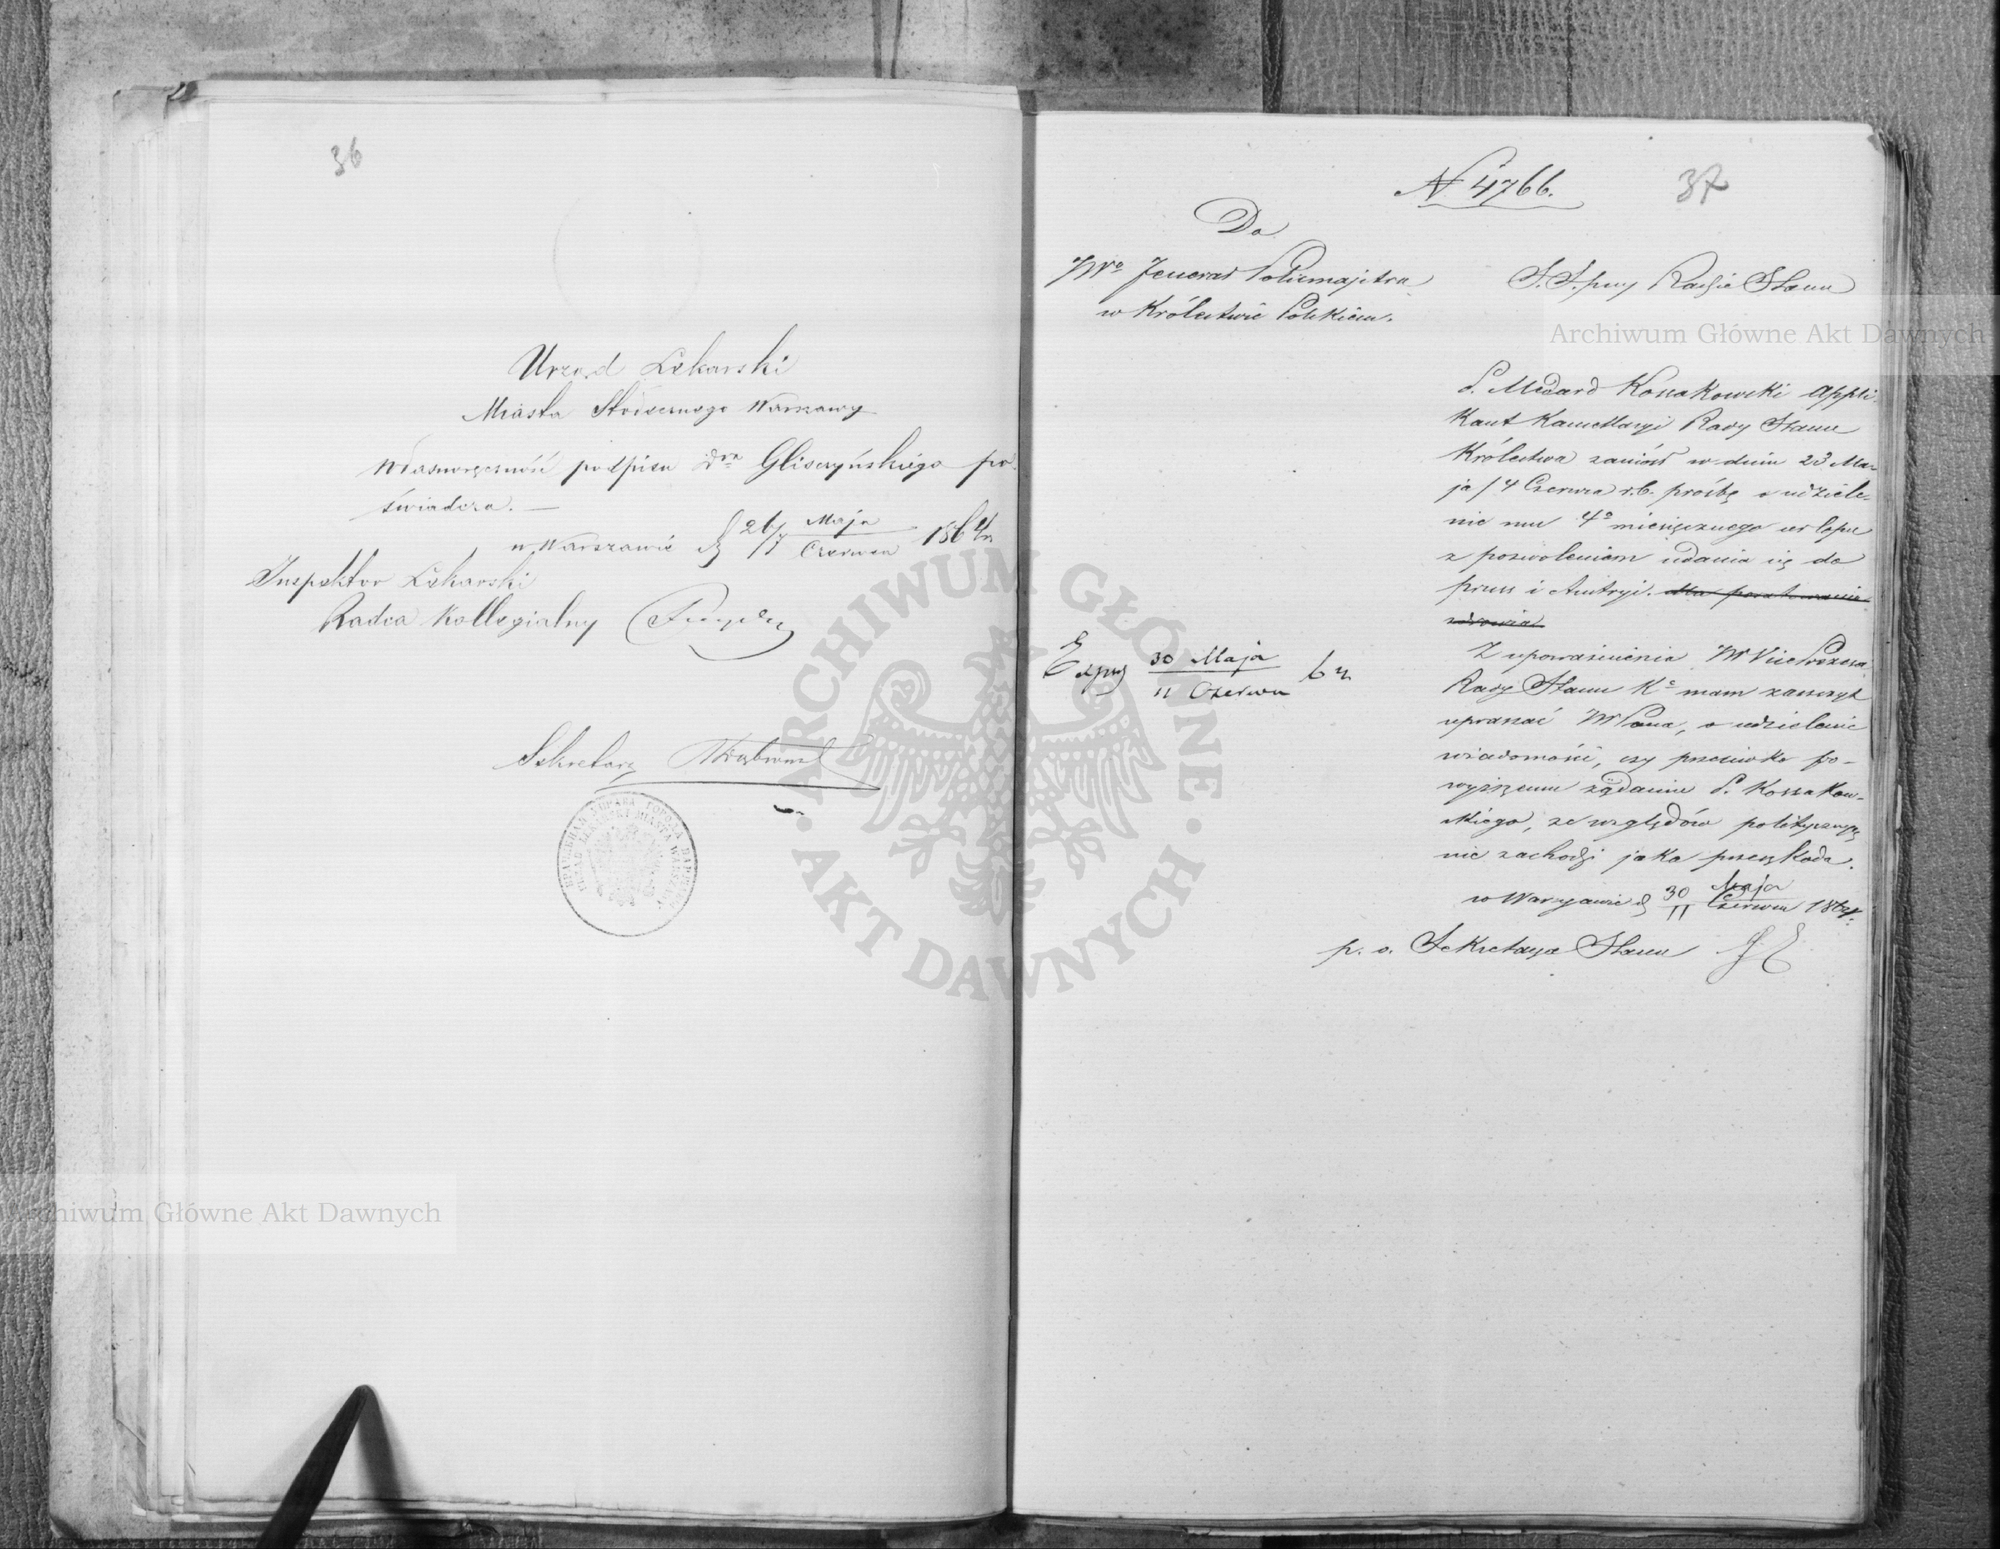 36
Urząd Lekarski
Miasta Stołecznego Warszawy
Własnoręczność podpisu Dra Gliszczyńskiego po-
świadcza. —
w Warszawie d 26/7 Maja/Czerwca 1864 r.
Inspektor Lekarski
Radca Kollegialny
Sekretarz
URZĄD LEKARSKI MIASTA WARSZAWY
37
N 4766.
Do
JWo Jenerał Policmajstra
w Królestwie Polskiem.
S. S. przy Radzie Stanu
P. Medard Kossakowski Appli-
kant Kancellaryi Rady Stanu
Królestwa zaniósł w dniu 23 Ma-
ja / 4 Czerwca r.b. prośbę o udziele-
nie mu 4o miesięcznego urlopu
z pozwoleniem udania się do
Pruss i Austryi. dla poratowania
zdrowia.
Z upoważnienia JW Vice Prezesa
Rady Stanu Ka mam zaszczyt
upraszać JW Pana, o udzielenie
wiadomości, czy przeciwko po-
wyższemu żądaniu P. Kossakow-
skiego, ze względów politycznych
nie zachodzi jaka przeszkoda.
w Warszawie d 30/11 Maja/Czerwca 1864.
p. o. Sekretarza Stanu
Exped 30 Maja / 11 Czerwca 64 r.
Archiwum Główne Akt Dawnych
Archiwum Główne Akt Dawnych
ARCHIWUM GŁÓWNE · AKT DAWNYCH ·